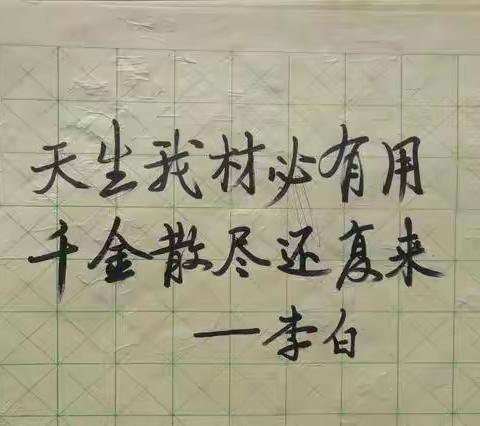 天生我材必有用
千金散尽还复来
—李白